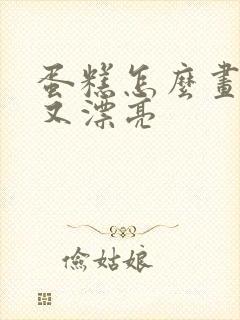 蛋糕怎麼畫
又漂亮
儉姑娘